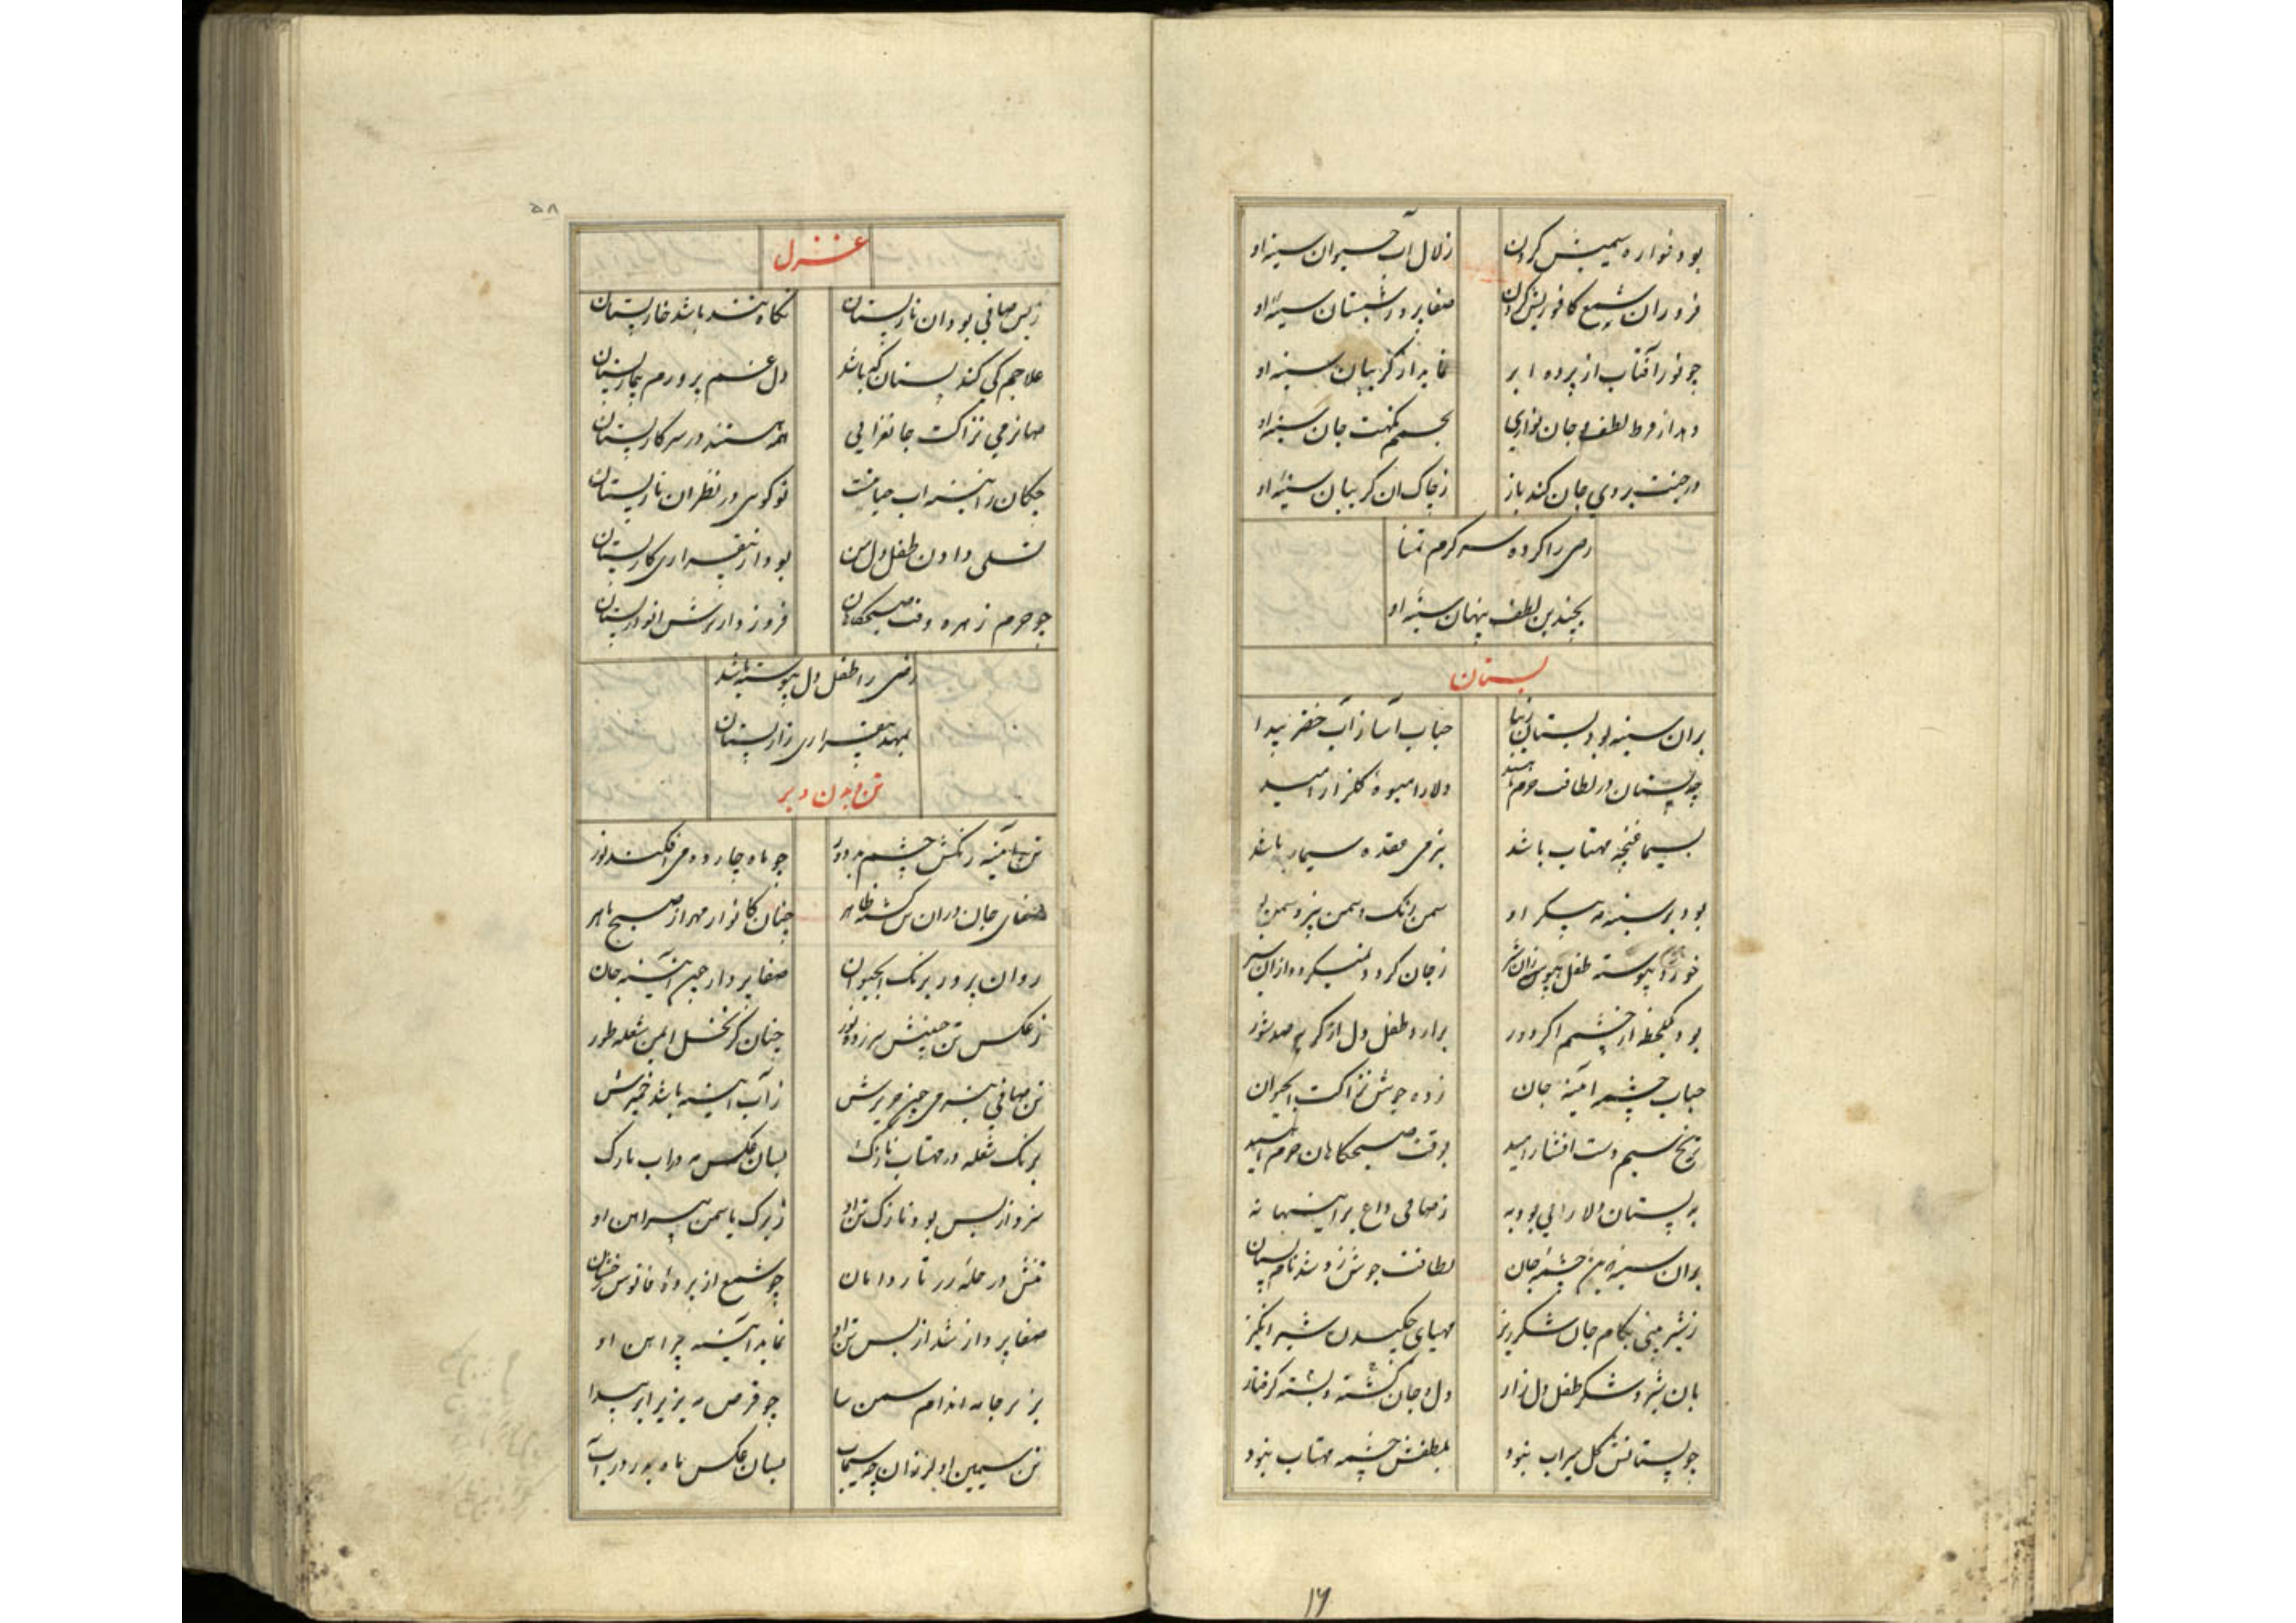 بود فواره سیمینش گردن زلال آب حیوان سینه او
فروزان شمع کافوریش گردن صفاپرور شبستان سینهٔ او
چو نور آفتاب از پرده ابر نماید از گریبان سینه او
دهد از فرط لطف و جان نوازی بجسم نکهت جان سینهٔ او
در جنت بروی جان کند باز ز چاک ان گریبان سینهٔ او
رضی را کرده سرگرم تمنا
بچندین لطف پنهان سینهٔ او
پستان
بران سینه بود پستان زیبا حباب آسا ز آب خضر پیدا
چو پستان در لطافت دلارا میوهٔ گلزار امید
بسیما غنچه مهتاب باشد بنرمی عقده سیماب باشد
بود بر سینه مه پیکر او سمن رنگ و سمن بیز و سمن بو
خورد پیوسته طفل ز جان گردد نمیگردد ازان سیر
بود یکلحظه از چشمم اگر دور برارد طفل دل از گریه صد شور
حباب چشمه آئینه جان زده جوش نزاکت
ترنج سیم دست افشار امید بوقت صبحگاهان
به پستان دلارایی بود به ز صافی داغ بر
بران سینه چشمهٔ جان لطافت جوش زد شد نام پستان
ز شیرینی بکام جان شکرریز مهیای چکیدن شیر انگیز
بان شیر و شکر طفل دل زار دل و جان گشته و بسته گرفتار
چو پستانش گل سیراب نبود بلطفش چشمه مهتاب نبود
۱۶
۵۸
غزل
ز بس صافی بود ان نار پستان نگاه باشد خار پستان
علاجم کی کند پستان که باشد دل غم پرورم بیمار پستان
صفا نرمی نزاکت جانفزایی همه هستند در سرکار پستان
چکان را اب حیاتت تو گویی در نظر ان نار پستان
تسلی دادن طفل دل من بود از بیقراری کار پستان
چو جرم زهره وقت صبحگاهان فروزد انور پستان
رضی را طفل دل پیوسته باشد
بمهد بیقراری زار پستان
تن و بدن و بر
تن آئینه رنگش چشم بد دور چو ماه چارده می افکند نور
صفای جان دران تن گشته ظاهر چنان کانوار مهر از صبح باهر
روان پرور برنگ ابحیوان صفاپرداز آئینه جان
ز عکس تن سر زده نور چنان کز نخل ایمن شعله طور
تن صافی ز آب آئینه باشد خمیرش
برنگ شعله در مهتاب نازک بسان عکس مه در اب نازک
سزد از بس بود نازک تن او ز برگ یاسمن پیراهن او
تنش در حله زرتار دامان چو شمع از پردهٔ فانوس رخشان
صفاپرداز شد از بس تن او نماید آئینه پیراهن او
بزیر جامه اندام سمن سا چو قرص مه بزیر ابر پیدا
تن سیمین او لرزان چو سیماب بسان عکس ماه بدر در آب